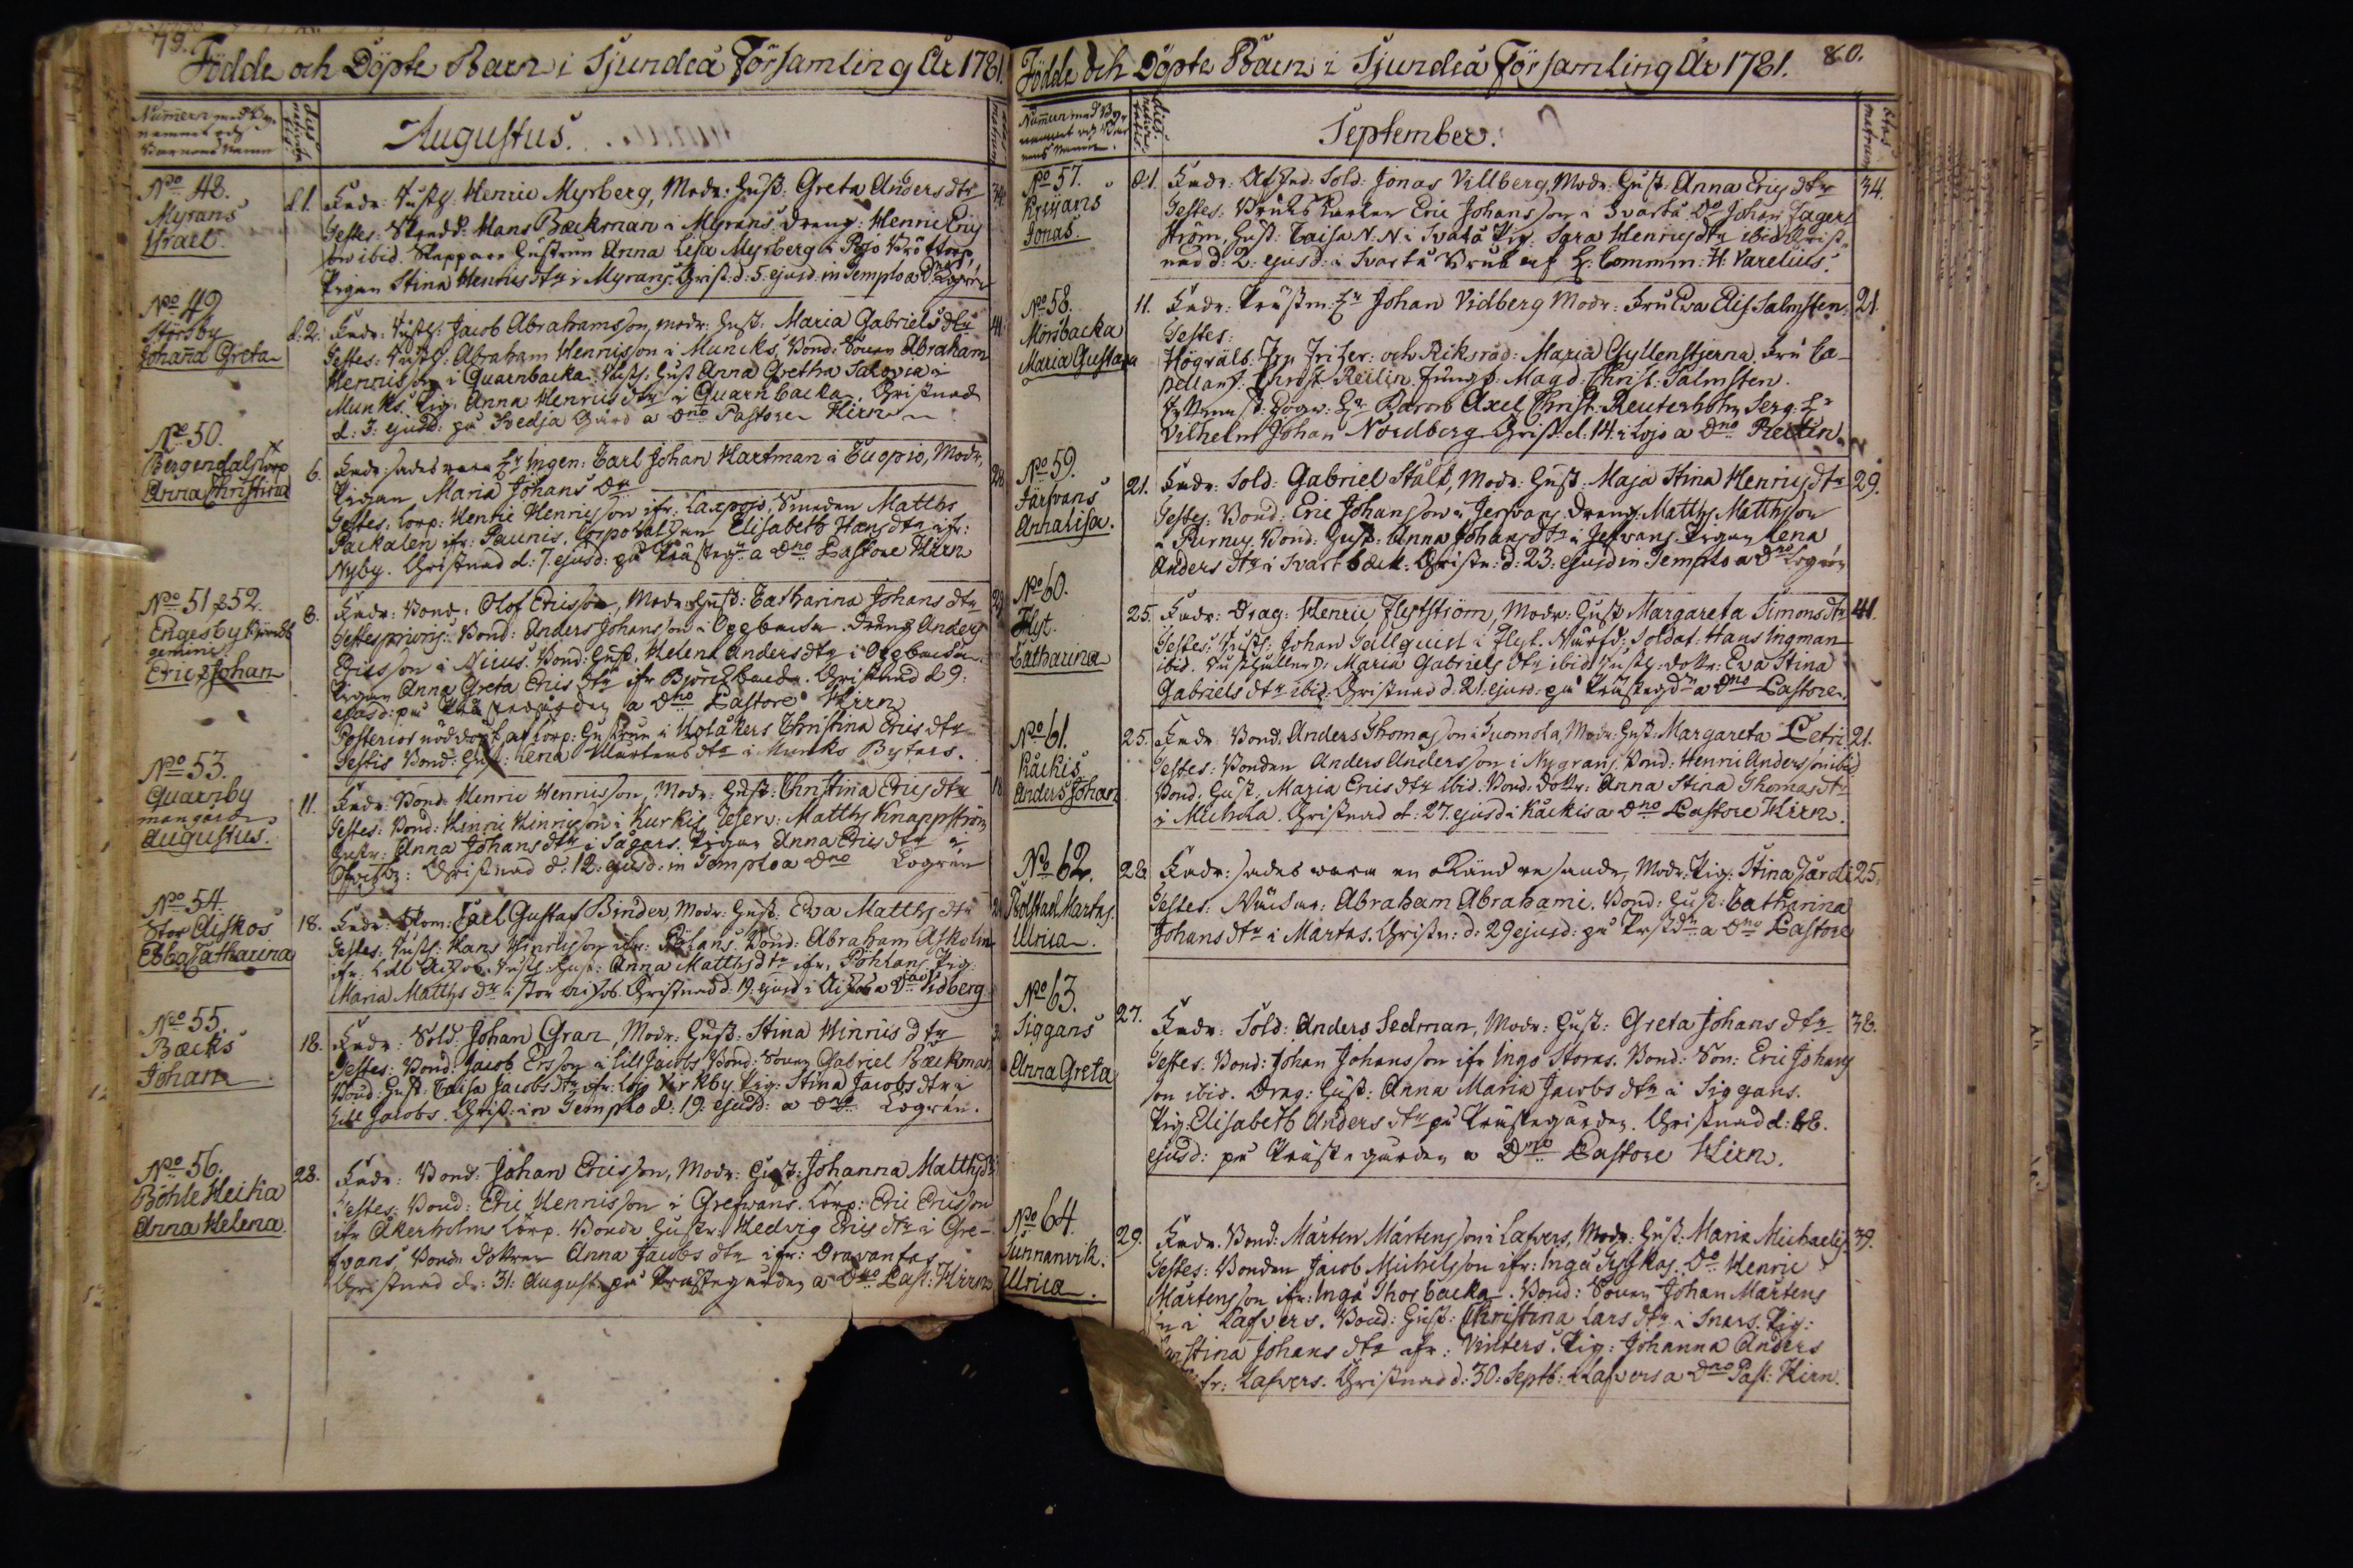 79.
Födde och Döpte Barn i Sjundeå Församling År 1781.
Numern med By-
namnet och
Barnens Namn
Augustus.
No 48.
Myrans
Israel.
d. 1. Fadr: Henric Myrberg, Modr: Hust: Greta Anders dtr
Testes: Hans Backman i Myrans. Dreng: Henric Erics
son ibid. Hustrun Anna Lisa Myrberg i
Pigan Stina Henrics dtr i Myrans. Christ: d. 5. ejusd. in Templo a Dno Logrén
No 49
Störsby
Johanna Greta
d: 2. Fadr: Jacob Abrahamsson, modr: Hust: Maria Gabriels dtr 41.
Testes: Abraham Henricsson i Muncks, Bond: Sonen Abraham
Henricsson i Quarnbacka. Hust: Anna Gretha Salomia i
Munks. Pig: Anna Henrics dtr i Quarnbacka. Christnad
d: 3: ejusd: på Svedja Gård a Dno Pastore Hirn
No 50.
Bergendals torp
Anna Christina
6. Fadr: sades vara Hr Ingen: Carl Johan Hartman i Cuopio, Modr. 28
Pigan Maria Johans Dr
Testes: Corp: Henric Henricsson ifr: Laxpojo, Smeden Matths
Packalen ifr: Paunis. Elisabeth Hans dtr ifr:
Nyby. Christnad d: 7. ejusd: på Prästeg: a Dno Pastore Hirn
No 51 & 52.
Engesby
gemini
Eric & Johan
8. Fadr: Bond: Olof Ericsson, Modr: Hust: Catharina Johans dtr
Testes prioris: Bond: Anders Johansson i Oggbacka. Dräng Anders
Ericsson i Nicus. Bond: Hust: Helena Anders dtr i Oggbacka
Pigan Anna Greta Erics dtr ifr Björcsbacka. Christnad d 9:
ejusd: på Prästegården a Dno Pastore Hirn
Posterior nöddöpt af Corp: Hustrun i Kolåkers Christina Erics dtr
Testis Bond: Hust: Lena Mårtens dtr i Munks Byters.
No 53.
Quarnby
mangård
Augustus.
11. Fadr: Bond: Henric Henricsson, Modr: Hust: Christina Erics dtr 18
Testes: Bond: Hinric Hinricsson i Kurkis, Reserv: Matths Knappström
Hustr: Anna Johans dtr i Sågars. Pigan Anna Erics dtr i
Christnad d: 12: ejusd: in Templo a Dno Logrén
No 54.
Stor Aiskos
Ebba Catharina
18. Fadr: Carl Gustaf Binder, Modr: Hust: Eva Matths dtr
Testes: Hans Hinricsson ifr: Pölans. Bond: Abraham Askolin
ifr: Lill Aiskos. Hust: Anna Matths dtr ifr. Pöhlans, Pig:
Maria Matths Dr i Stor Aiskos. Christnad d: 19: ejusd i Aiskos a Dno Vidberg
No 55.
Bæcks
Johan
18. Fadr: Sold: Johan Gran, Modr: Hust: Stina Hinrics dtr
Testes: Bond: Jacob Ersson i Lill Jacobs, Bond: Sonen Gabriel Backman
Bond: Hust: Caisa Jacobs dtr ifr: Lojo Kyrkby. Pig: Stina Jacobs dtr i
Lill Jacobs. Christ: in Templo d: 19: ejusd: a Dno Logrén.
No 56.
Böhle Heika
Anna Helena.
28. Fadr: Bond: Johan Ericsson, Modr: Hust: Johanna Matths dr
Testes: Bond: Eric Henricsson i Grefvans. Corp: Eric Ericsson
ifr Åkerholms torp. Bonde Hustr: Hedvig Erics dtr i Gre-
fvans, Bonde dottren Anna Jacobs dtr ifr: Dravantas
Christnad d: 31: August: på Prästegården a Dno Past: Hirn
80.
Födde och Döpte Barn i Sjundeå Församling År 1781.
Numern med By-
namnet och Bar
nens Namn.
September.
Ætas
matrum
No 57.
Krejans
Jonas.
d. 1. Fadr: Afsked: Sold: Jonas Villberg, Modr: Hust: Anna Erics dtr 34.
Testes: Bruks Karlen Eric Johansson i Svartå Do Johan Jager
ström, Hust: Caisa N.N. i Svartå Pig: Sara Henrics dtr ibid. Christ-
nad d: 2: ejusd: i Svartå Bruk af H: Commin: H: Varelius.
No 58.
Mörsbacka
Maria Gustava
11. Fadr: Hr Johan Vidberg Modr: Fru Eva Elis: Salmsten. 21.
Testes:
Högvälb: Fru Friher: och Riksråd: Maria Gyllenstjerna. Fru Ca-
pellans: Christ: Reilin. Jungf: Magd: Christ: Salmsten.
Hr Baron Axel Christ: Reuterholm, Serg: Hr
Vilhelm Johan Nordberg. Christ: d: 14. i Lojo a Dno Reilin.
No 59.
Järfvans
Annalisa.
21. Fadr: Sold: Gabriel Stålt, Modr: Hust: Maja Stina Henrics dtr 29.
Testes: Bond: Eric Johansson i Jerfvans. Dreng: Matths Matthsson
i Purnus. Bond: Hust: Anna Johans dtr i Jerfvans. Pigan Lena
Anders dtr i Svartbæck. Christn: d: 23: ejusd in Templo a Dno Logrén
No 60.
Flyt.
Catharina
25. Fadr: Drag: Henric Flytström, Modr: Hust: Margareta Simons dtr 41.
Testes: Johan Sallquist i Flyt. Soldat: Hans Ingman
ibid. Maria Gabriels dtr ibid. dottr: Eva Stina
Gabriels dtr ibid: Christnad d: 21. ejusd: på Prästegdn a Dno Pastore.
No 61.
Kackis
Anders Johan
25. Fadr: Bond: Anders Thomasson i Suomola, Modr: Hust: Margareta Petri. 21.
Testes: Bonden Anders Andersson i Nygrans, Bond: Henric Andersson ibid
Bond: Hust: Maria Erics dtr ibid. Bond: Dottr: Anna Stina Thomas dtr
i Michola. Christnad d: 27. ejusd i Kackis a Dno Pastore Hirn.
No 62.
Bolstad Martas
Ulrica.
28. Fadr: sades wara en Ränd resande, Modr: Pig: Stina Jardi 25.
Testes: Abraham Abrahami. Bond: Hust: Catharina
Johans dtr i Martas. Christn: d: 29 ejusd: på Prstdn a Dno Pastore
No 63.
Siggans
Anna Greta
27. Fadr: Sold: Anders Sedman, Modr: Hust: Greta Johans dtr 38.
Testes: Bond: Johan Johansson ifr Ingo Storns. Bond: Son: Eric Johans
son ibid. Drag: Hust: Anna Maria Jacobs dtr i Siggans.
Pig: Elisabeth Anders dtr på Prästegården. Christnad d: 28.
ejusd: på Prästegården a Dno Pastore Hirn.
No 64.
Sunnanvik.
Ulrica.
29. Fadr. Bond: Mårten Mårtensson i Lafvers, Modr: Hust: Maria Michaelis 39.
Testes: Bonden Jacob Michelsson ifr: Ingå Do Henric
Mårtensson ifr: Ingå Thorbacka. Bond: Sonen Johan Mårtens
i Lafvers. Bond: Hust: Christina Lars dtr i Snars. Pig:
stina Johans dtr ifr: Vinters. Pig: Johanna Anders
ifr: Lafvers. Christnad d: 30: Septb: i Lafvers a Dno Past: Hirn.